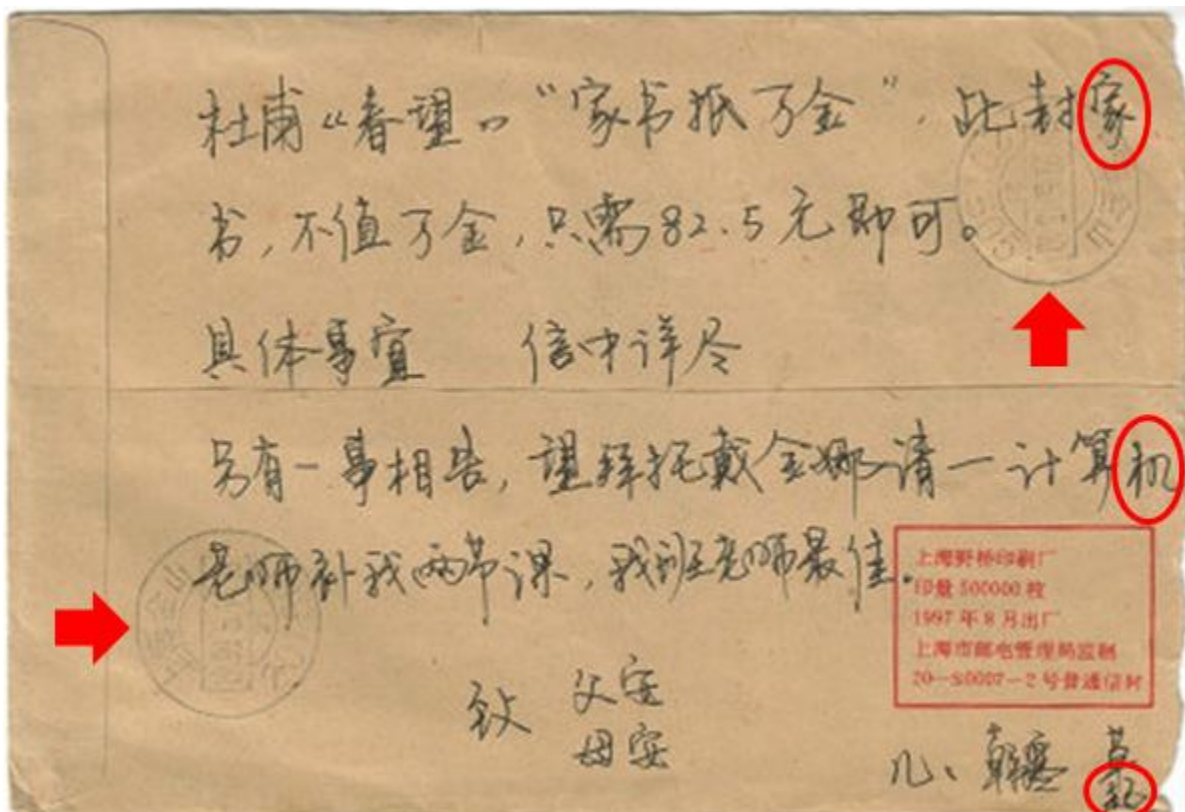 杜甫《春望》“家书抵万金”，此封家
书，不值万金，只需82.5元即可。
具体事宜 信中详尽
另有一事相告，望拜托戴金娜请一计算机
老师补我两节课，我班老师最佳。
上海野桥印刷厂
印量 500000 枚
1997 年 8 月出厂
上海市邮电管理局监制
20—S0007—2 号普通信封
致 父安
母安
儿、韩寒 草